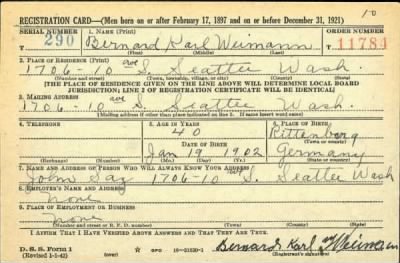 10
REGISTRATION CARD—(Men born on or after February 17, 1897 and on or before December 31, 1921)
SERIAL NUMBER 1. NAME (Print) ORDER NUMBER
290 Bernard Karl Weimann 11784
(First) (Middle) (Last)
2. PLACE OF RESIDENCE (Print)
1706-10 ave S. Seattle Wash
(Number and street) (Town, township, village, or city) (County) (State)
[THE PLACE OF RESIDENCE GIVEN ON THE LINE ABOVE WILL DETERMINE LOCAL BOARD
JURISDICTION; LINE 2 OF REGISTRATION CERTIFICATE WILL BE IDENTICAL]
3. MAILING ADDRESS
1706-10 ave S. Seattle Wash.
(Mailing address if other than place indicated on line 2. If same insert word same)
4. TELEPHONE 5. AGE IN YEARS 6. PLACE OF BIRTH
40 Rittenberg
DATE OF BIRTH (Town or county)
Jan 19 1902 Germany
(Exchange) (Number) (Mo.) (Day) (Yr.) (State or country)
7. NAME AND ADDRESS OF PERSON WHO WILL ALWAYS KNOW YOUR ADDRESS
John 1706-10 S. Seattle Wash
8. EMPLOYER'S NAME AND ADDRESS
None
9. PLACE OF EMPLOYMENT OR BUSINESS
None
(Number and street or R. F. D. number) (Town) (County) (State)
I AFFIRM THAT I HAVE VERIFIED ABOVE ANSWERS AND THAT THEY ARE TRUE.
D. S. S. Form 1 GPO 16—21630-1 Bernard Karl Weimann
(Revised 1-1-42) (Registrant's signature)